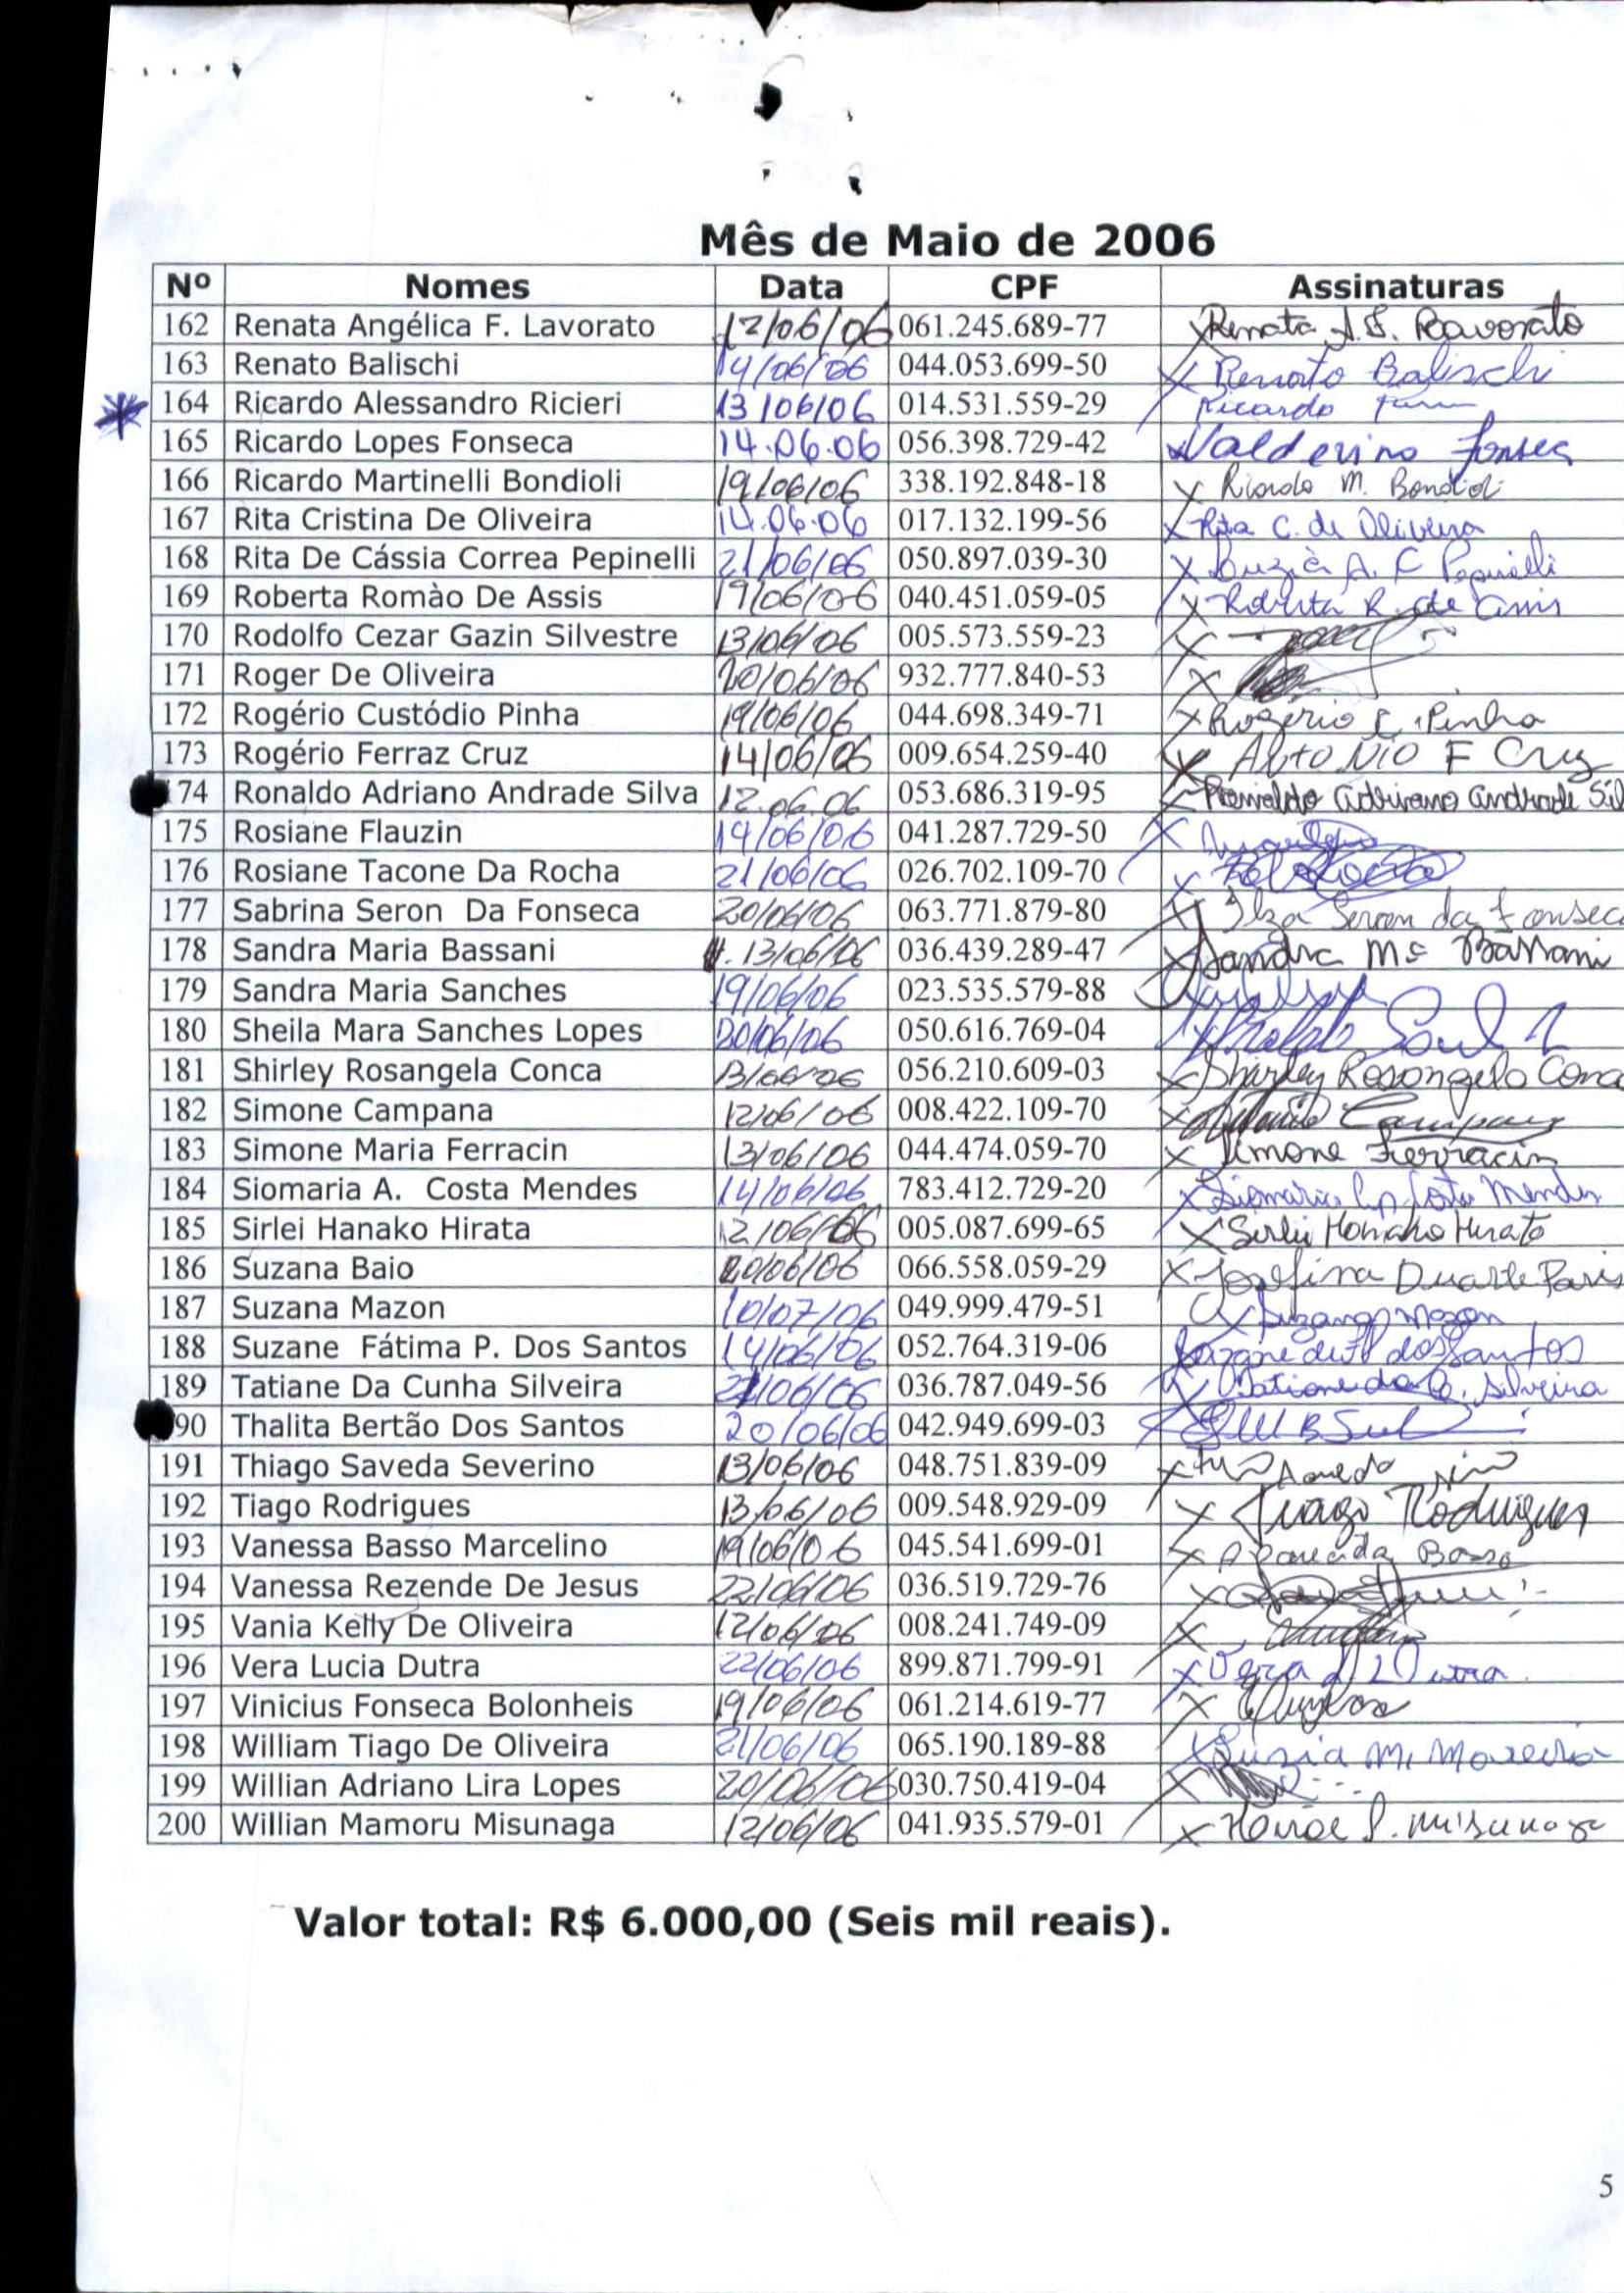 Mês de Maio de 2006
Nº Nomes Data CPF Assinaturas
162 Renata Angélica F. Lavorato 12/06/06 061.245.689-77 Renata A. F. Lavorato
163 Renato Balischi 14/06/06 044.053.699-50 Renato Balischi
164 Ricardo Alessandro Ricieri 13/06/06 014.531.559-29 Ricardo
165 Ricardo Lopes Fonseca 14.06.06 056.398.729-42 Valdevino Fonseca
166 Ricardo Martinelli Bondioli 19/06/06 338.192.848-18 Ricardo M. Bondioli
167 Rita Cristina De Oliveira 14.06.06 017.132.199-56 Rita C. de Oliveira
168 Rita De Cássia Correa Pepinelli 21/06/06 050.897.039-30 Luzia A. C Pepinelli
169 Roberta Romào De Assis 19/06/06 040.451.059-05 Roberta R. de Assis
170 Rodolfo Cezar Gazin Silvestre 13/06/06 005.573.559-23
171 Roger De Oliveira 20/06/06 932.777.840-53
172 Rogério Custódio Pinha 19/06/06 044.698.349-71 Rogério C. Pinha
173 Rogério Ferraz Cruz 14/06/06 009.654.259-40 F Cruz
74 Ronaldo Adriano Andrade Silva 12.06.06 053.686.319-95 Ronaldo Adriano Andrade Sil
175 Rosiane Flauzin 14/06/06 041.287.729-50
176 Rosiane Tacone Da Rocha 21/06/06 026.702.109-70
177 Sabrina Seron Da Fonseca 20/06/06 063.771.879-80 Ilza Seron da Fonseca
178 Sandra Maria Bassani 13/06/06 036.439.289-47 Sandra Mª Bassani
179 Sandra Maria Sanches 19/06/06 023.535.579-88
180 Sheila Mara Sanches Lopes 20/06/06 050.616.769-04
181 Shirley Rosangela Conca 13/06/06 056.210.609-03 Shirley Rosangela Conca
182 Simone Campana 12/06/06 008.422.109-70 Campana
183 Simone Maria Ferracin 13/06/06 044.474.059-70 Simone Ferracin
184 Siomaria A. Costa Mendes 14/06/06 783.412.729-20 Siomaria Ap. Costa Mendes
185 Sirlei Hanako Hirata 12/06/06 005.087.699-65 Sirlei Hanako Hirata
186 Suzana Baio 20/06/06 066.558.059-29 Josefina Duarte Paris
187 Suzana Mazon 10/07/06 049.999.479-51 Suzana Mazon
188 Suzane Fátima P. Dos Santos 14/06/06 052.764.319-06 Suzane de F. dos Santos
189 Tatiane Da Cunha Silveira 21/06/06 036.787.049-56 Tatiane da C. Silveira
90 Thalita Bertão Dos Santos 20/06/06 042.949.699-03
191 Thiago Saveda Severino 13/06/06 048.751.839-09
192 Tiago Rodrigues 13/06/06 009.548.929-09 Tiago Rodrigues
193 Vanessa Basso Marcelino 19/06/06 045.541.699-01 Aparecida Basso
194 Vanessa Rezende De Jesus 22/06/06 036.519.729-76
195 Vania Kelly De Oliveira 12/06/06 008.241.749-09
196 Vera Lucia Dutra 22/06/06 899.871.799-91 Vera L Dutra
197 Vinicius Fonseca Bolonheis 19/06/06 061.214.619-77
198 William Tiago De Oliveira 21/06/06 065.190.189-88 Luzia M. Moreira
199 Willian Adriano Lira Lopes 20/06/06 030.750.419-04
200 Willian Mamoru Misunaga 12/06/06 041.935.579-01 S. Misunaga
Valor total: R$ 6.000,00 (Seis mil reais).
5